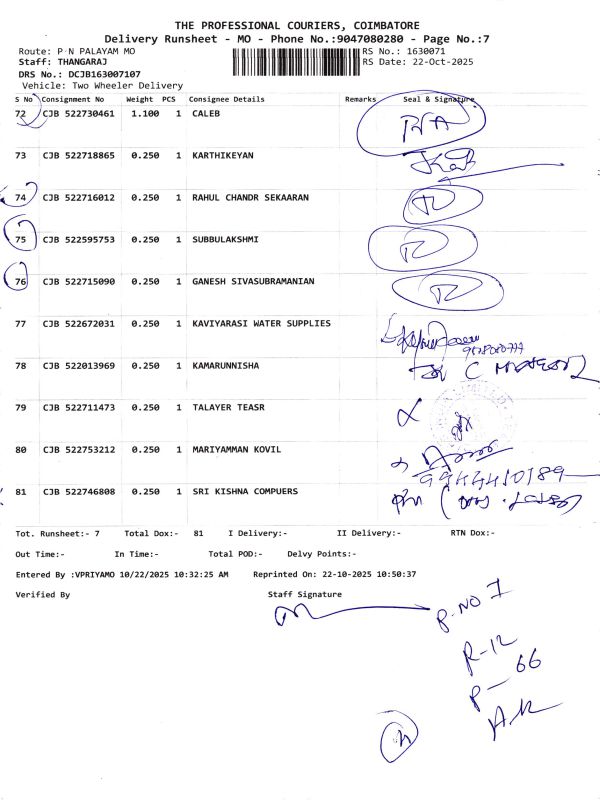 THE PROFESSIONAL COURIERS, COIMBATORE
Delivery Runsheet - MO - Phone No.:9047080280 - Page No.:7
Route: P N PALAYAM MO RS No.: 1630071
Staff: THANGARAJ RS Date: 22-Oct-2025
DRS No.: DCJB163007107
Vehicle: Two Wheeler Delivery
S No Consignment No Weight PCS Consignee Details Remarks Seal & Signature
72 CJB 522730461 1.100 1 CALEB
73 CJB 522718865 0.250 1 KARTHIKEYAN
74 CJB 522716012 0.250 1 RAHUL CHANDR SEKAARAN
75 CJB 522595753 0.250 1 SUBBULAKSHMI
76 CJB 522715090 0.250 1 GANESH SIVASUBRAMANIAN
77 CJB 522672031 0.250 1 KAVIYARASI WATER SUPPLIES
78 CJB 522013969 0.250 1 KAMARUNNISHA
79 CJB 522711473 0.250 1 TALAYER TEASR
80 CJB 522753212 0.250 1 MARIYAMMAN KOVIL
81 CJB 522746808 0.250 1 SRI KISHNA COMPUERS
Tot. Runsheet:- 7 Total Dox:- 81 I Delivery:- II Delivery:- RTN Dox:-
Out Time:- In Time:- Total POD:- Delvy Points:-
Entered By :VPRIYAMO 10/22/2025 10:32:25 AM Reprinted On: 22-10-2025 10:50:37
Verified By Staff Signature
P-NO 7
R-12
P-66